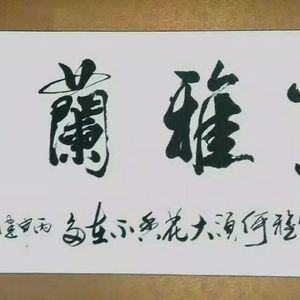 雅蘭
雅何須大花香不在多丙申